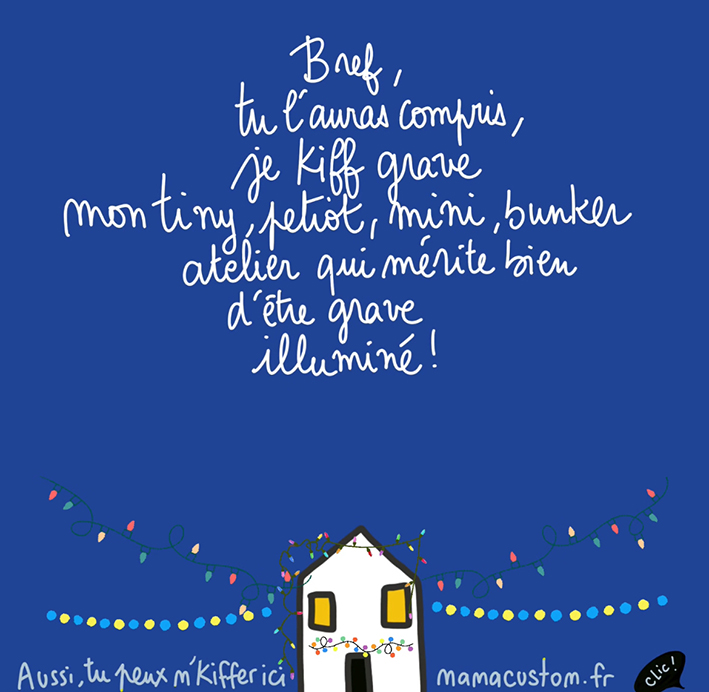 Bref,
tu l'auras compris,
je kiff grave
mon tiny, petiot, mini, bunker
atelier qui mérite bien
d'être grave
illuminé!
Aussi, tu peux m'Kiffer ici
mamacustom.fr
CLIC!